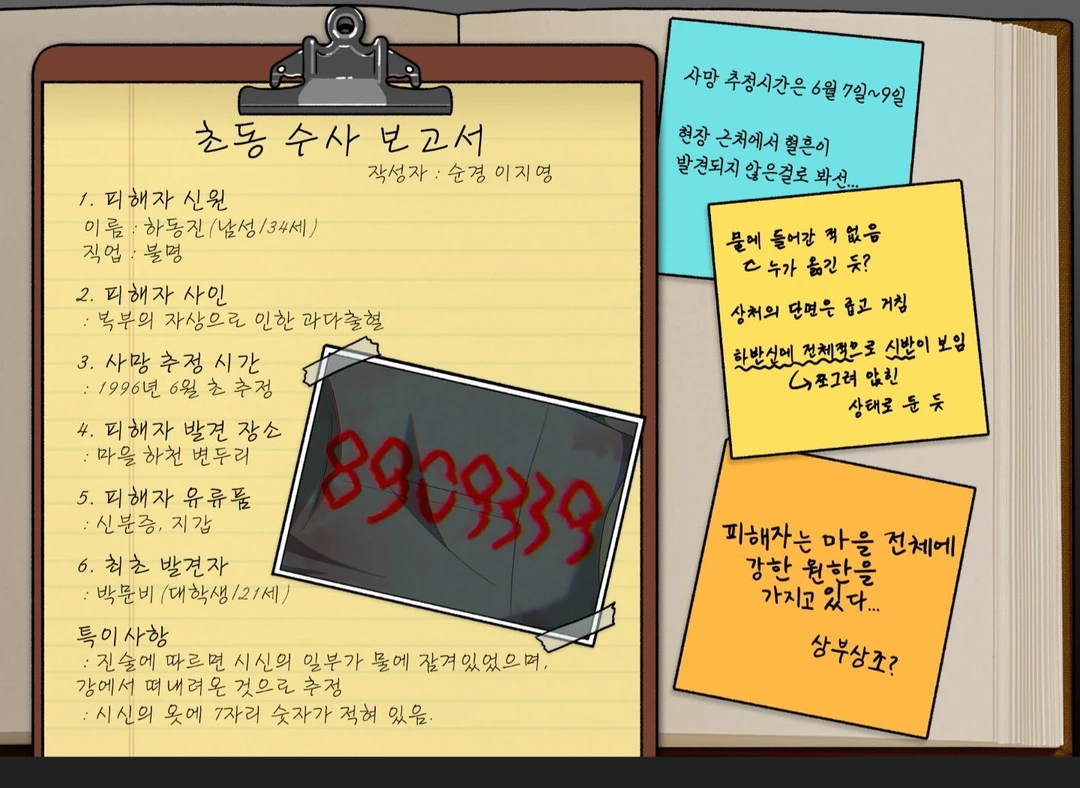 초동 수사 보고서
작성자 : 순경 이지영
1. 피해자 신원
이름 : 하동진(남성/34세)
직업 : 불명
2. 피해자 사인
: 복부의 자상으로 인한 과다출혈
3. 사망 추정 시간
: 1996년 6월 초 추정
4. 피해자 발견 장소
: 마을 하천 변두리
5. 피해자 유류품
: 신분증, 지갑
6. 최초 발견자
: 박문비(대학생/21세)
특이사항
: 진술에 따르면 시신의 일부가 물에 잠겨있었으며,
강에서 떠내려온 것으로 추정
: 시신의 옷에 7자리 숫자가 적혀 있음.
8909339
사망 추정시간은 6월 7일~9일
현장 근처에서 혈흔이
발견되지 않은걸로 봐선...
물에 들어간 적 없음
누가 옮긴 듯?
상처의 단면은 좁고 거침
하반신에 전체적으로 시반이 보임
쪼그려 앉힌
상태로 둔 듯
피해자는 마을 전체에
강한 원한을
가지고 있다...
상부상조?